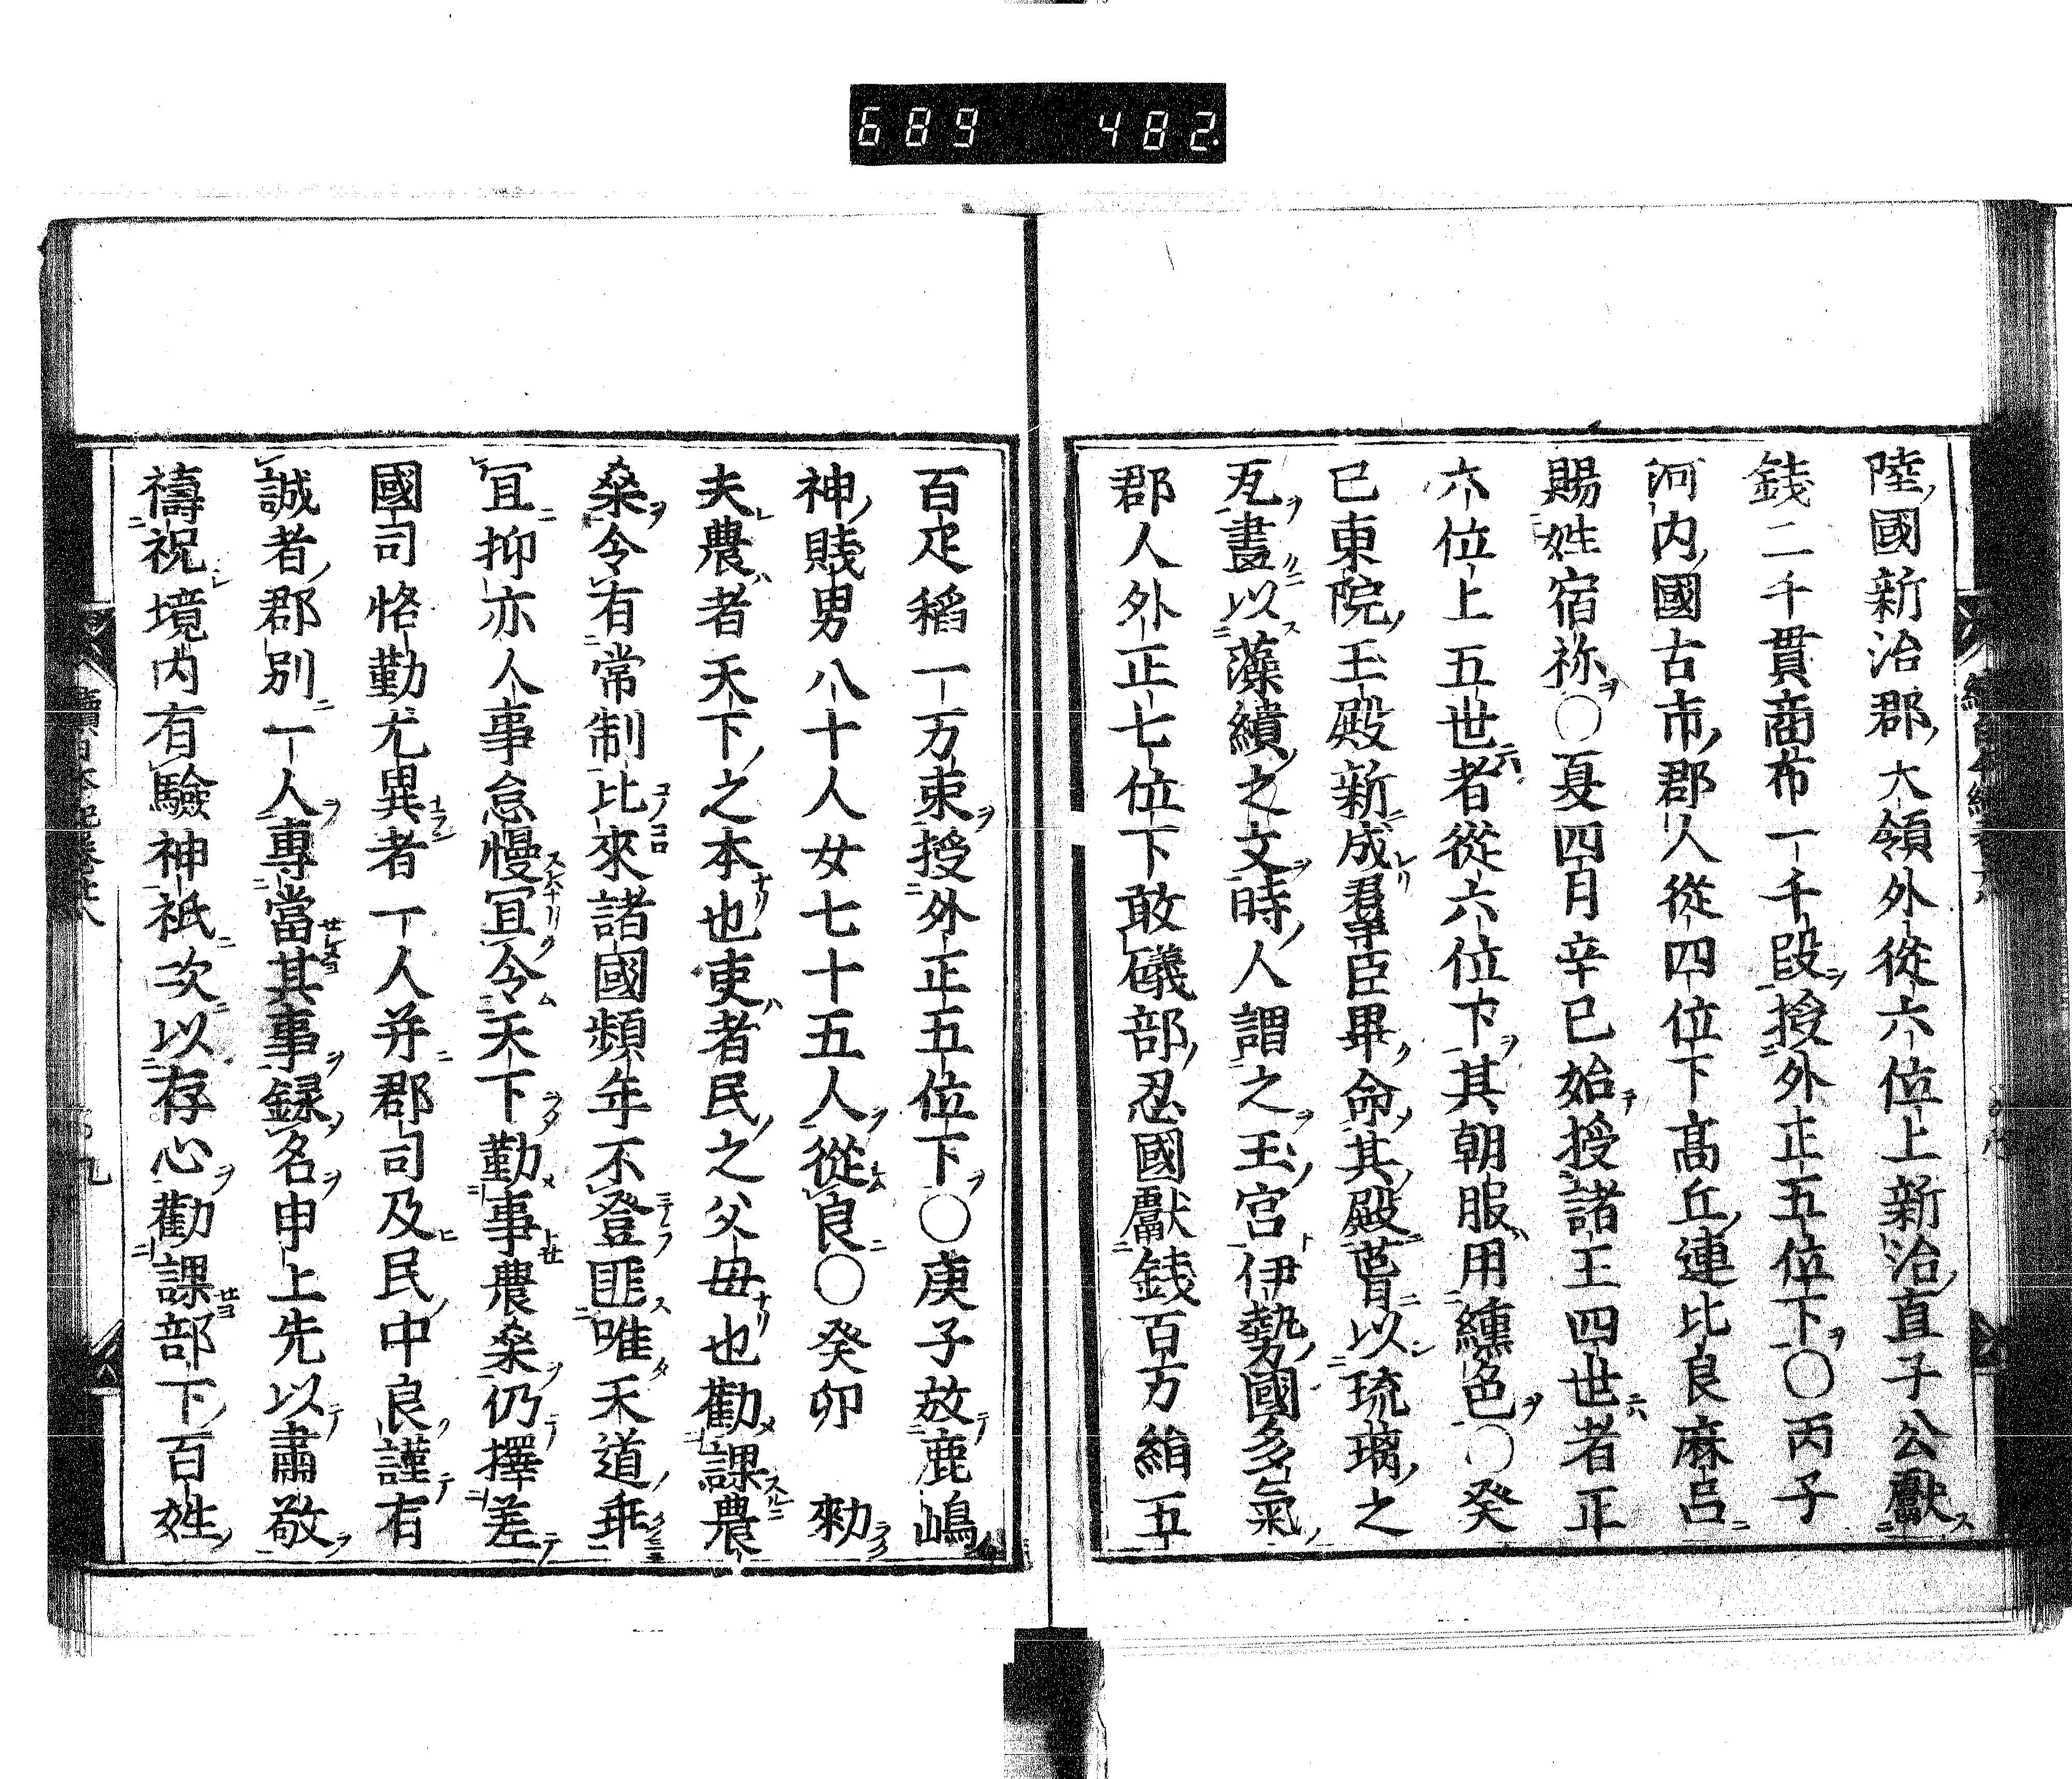 689 482
陸國新治郡大領外從六位上新治直子公獻
錢二千貫商布一千段授外正五位下○丙子
河内國古市郡人從四位下髙丘連比良麻呂
賜姓宿祢○夏四月辛巳始授諸王四世者正
六位上五世者從六位下其朝服用纁色○癸
巳東院玉殿新成羣臣畢命其殿葺以琉璃之
瓦畫以藻繢之文時人謂之玉宮伊勢國多氣
郡人外正七位下敢礒部忍國獻錢百万絹五
百疋稻一万束授外正五位下○庚子放鹿嶋
神賤男八十人女七十五人從良○癸卯　勑
夫農者天下之本也吏者民之父母也勸課農
桒令有常制比來諸國頻年不登匪唯天道乖
冝抑亦人事怠慢冝令天下勤事農桒仍擇差
國司恪勤尤異者一人并郡司及民中良謹有
誠者郡別一人專當其事録名申上先以肅敬
禱祝境内有驗神祇次以存心勸課部下百姓